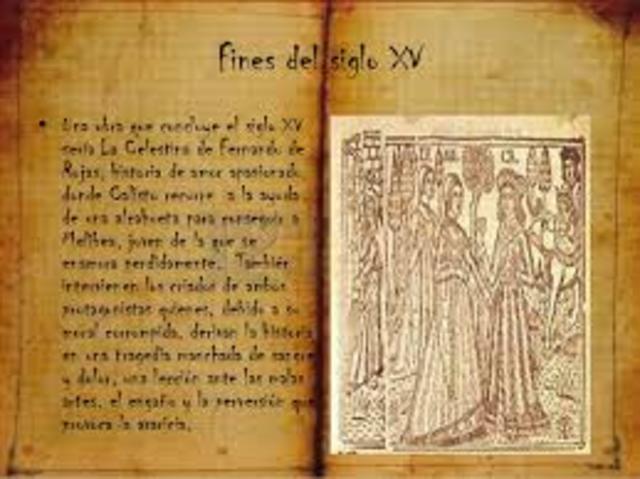 Fines del siglo XV
• Una obra que concluye el siglo XV
sería La Celestina de Fernando de
Rojas, historia de amor apasionado
donde Calisto recurre a la ayuda
de una alcahueta para conseguir a
Melibea, joven de la que se
enamora perdidamente. También
intervienen los criados de ambos
protagonistas quienes, debido a su
moral corrompida, derivan la historia
en una tragedia manchada de sangre
y dolor, una lección ante las malas
artes, el engaño y la perversión que
provoca la avaricia.